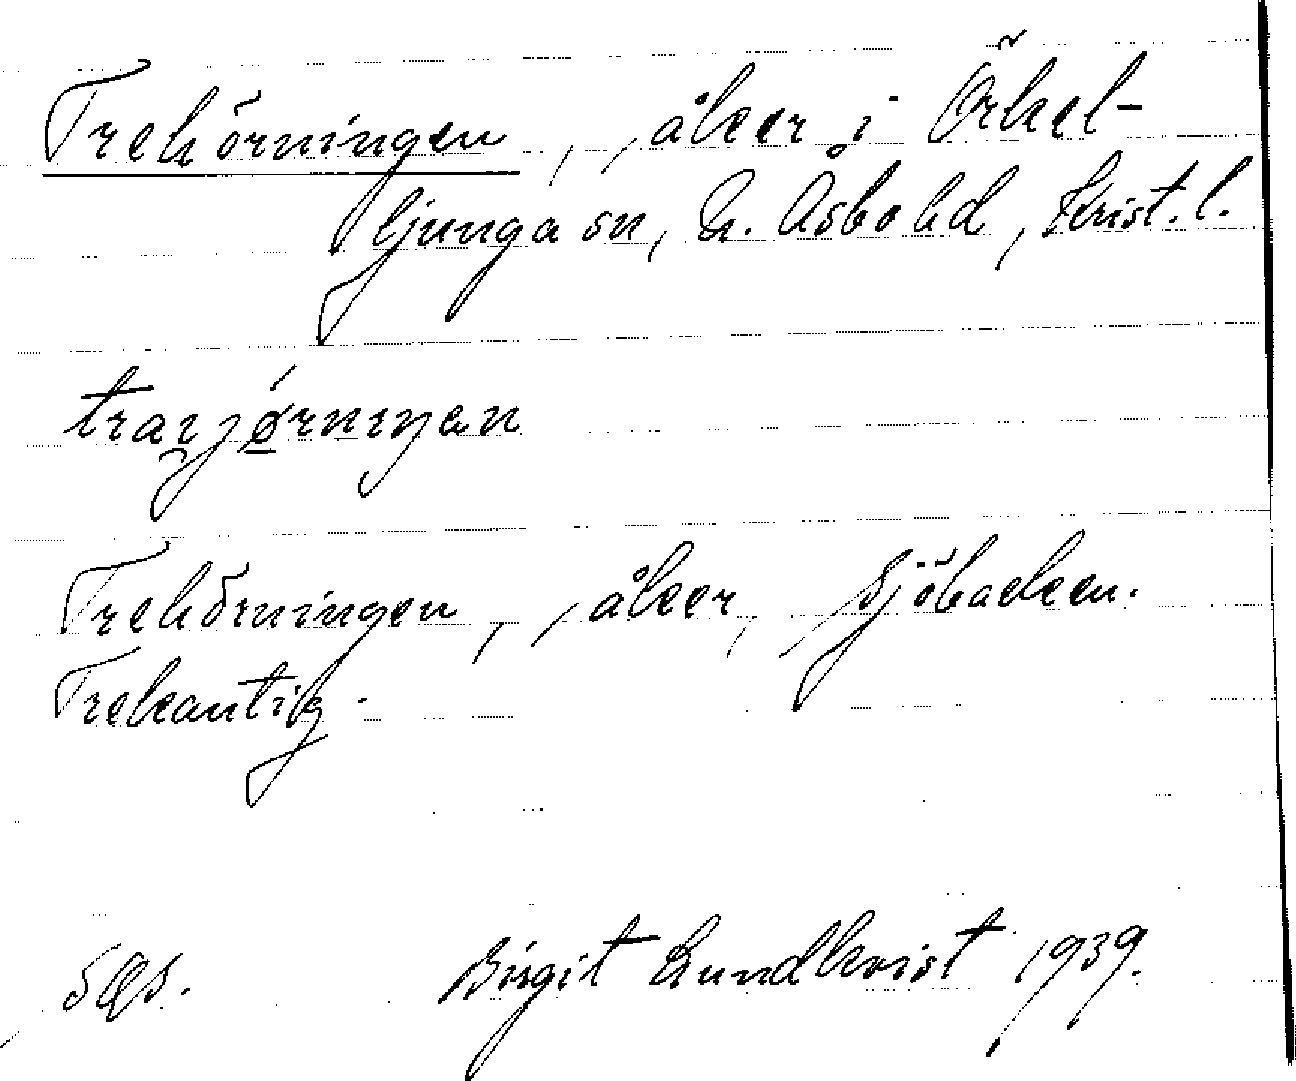 Trehörningen, , åker i Örkel-
ljunga sn, N. Åsbo hd, Krist. l.
Trehörningen, , åker, Sjöbacken.
Trekantig.
Sgs. Birgit Lundkvist 1939.